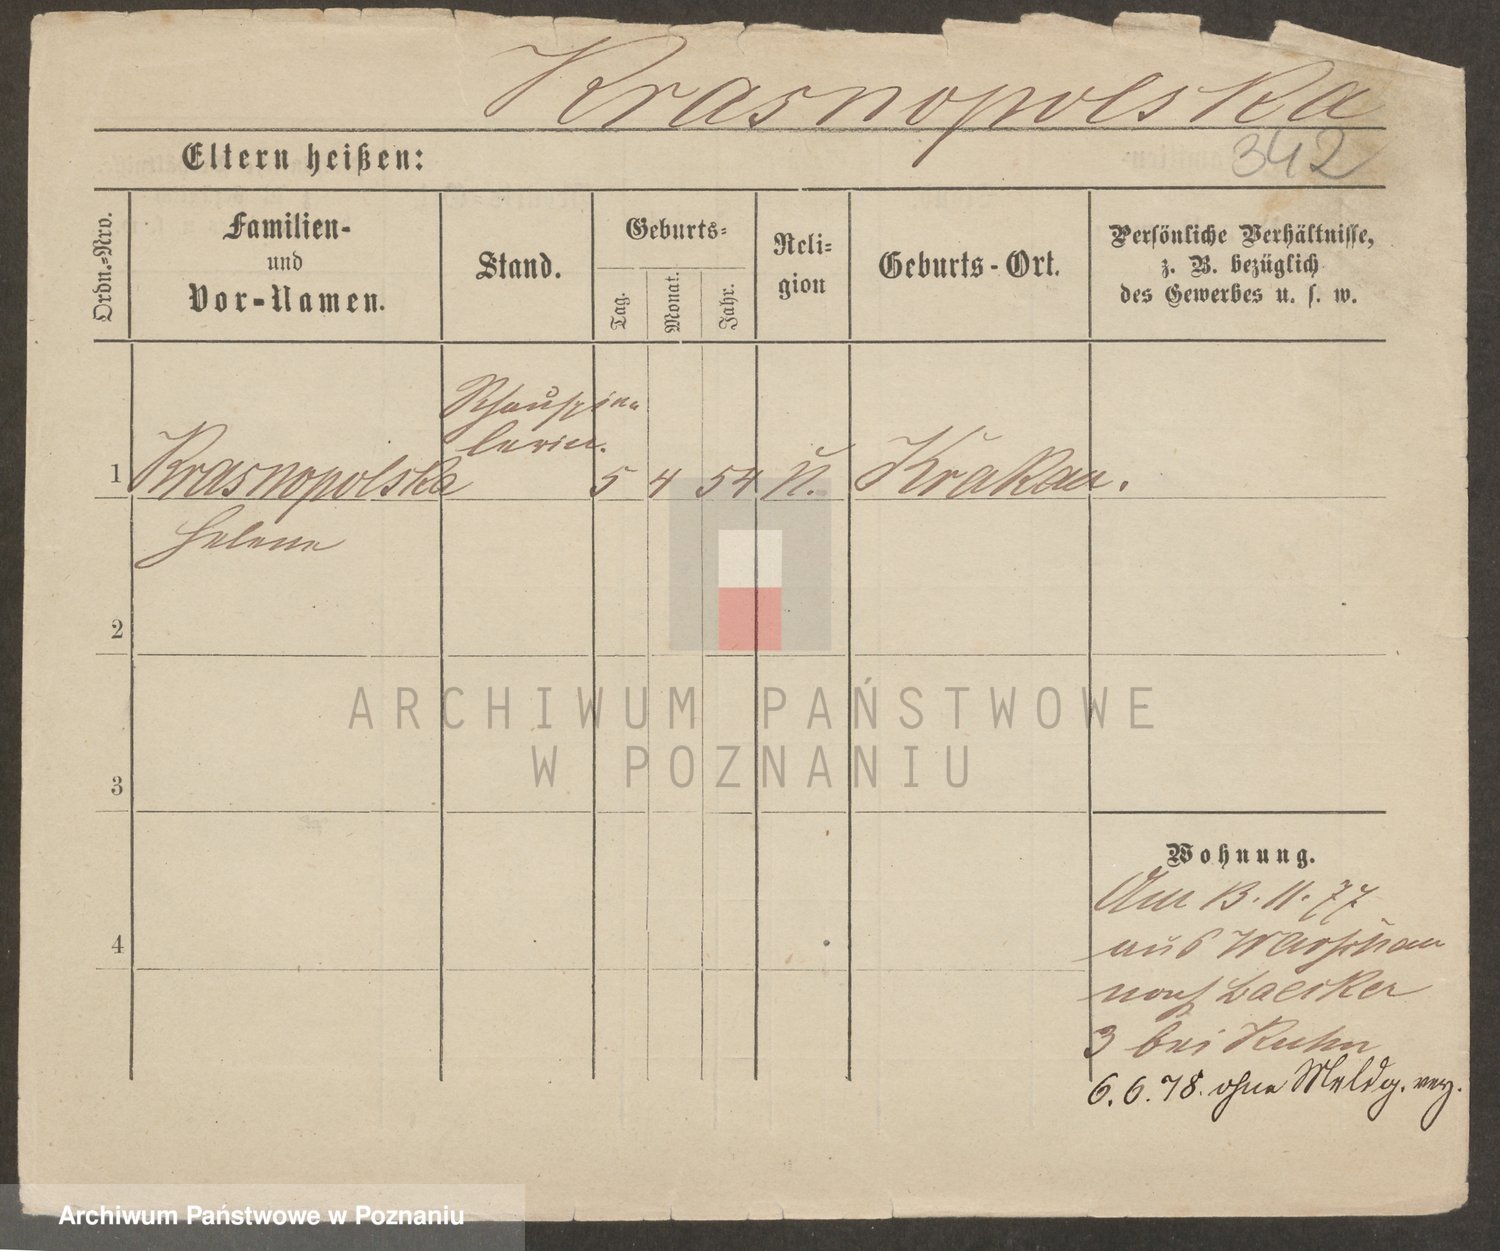 Krasnopolska
342
Eltern heißen:
Ordn.-Nro.
Familien-
und
Vor-Namen.
Stand.
Geburts-
Tag.
Monat.
Jahr.
Reli-
gion
Geburts-Ort.
Persönliche Verhältnisse,
z. B. bezüglich
des Gewerbes u. s. w.
Schauspie-
lerin.
1 Krasnopolska 5 4 54 K. Krakau.
Helene
2
3
4
Wohnung.
Am 13. 11. 77
aus Warschau
nach Baecker
3 bei Kuhn
6. 6. 78. ohne Meldg. verz.
ARCHIWUM PAŃSTWOWE
W POZNANIU
Archiwum Państwowe w Poznaniu